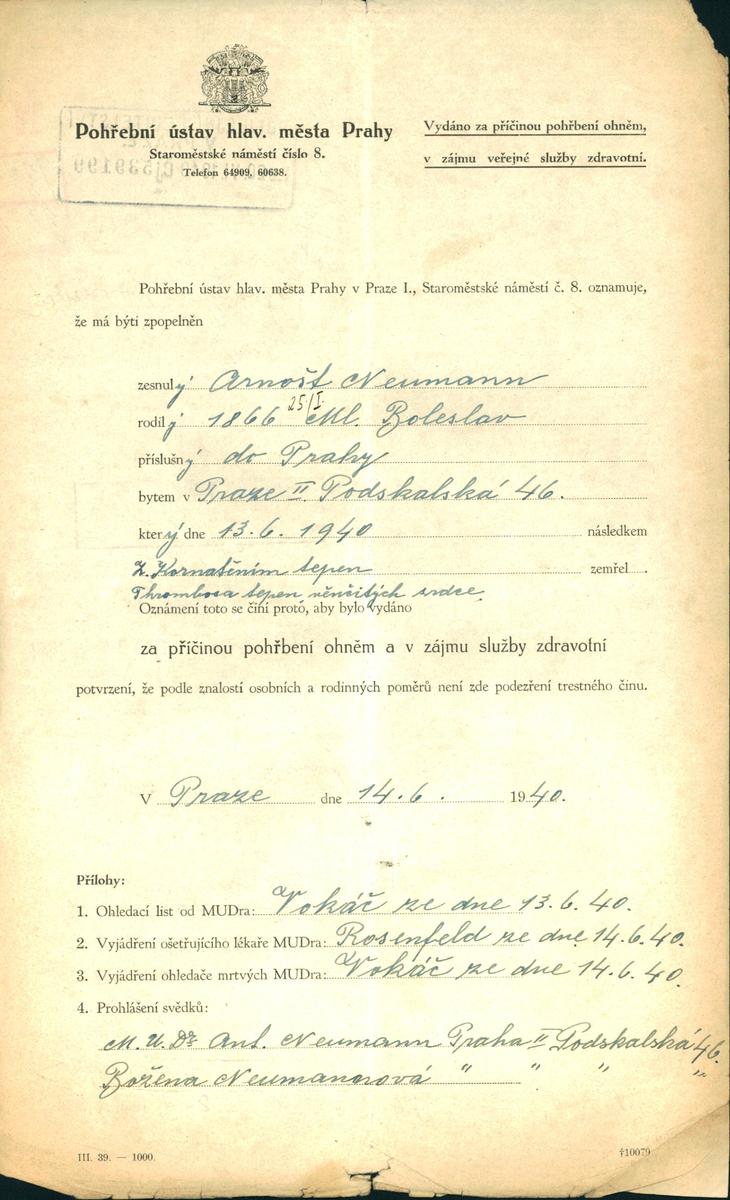 Pohřební ústav hlav. města Prahy
Staroměstské náměstí číslo 8.
Telefon 64909, 60638.
Vydáno za příčinou pohřbení ohněm,
v zájmu veřejné služby zdravotní.
Pohřební ústav hlav. města Prahy v Praze I., Staroměstské náměstí č. 8. oznamuje,
že má býti zpopelněn
zesnulý Arnošt Neumann
rodilý 1866 25/I. Ml. Boleslav
příslušný do Prahy
bytem v Praze II. Podskalská 46.
který dne 13. 6. 1940 následkem
Z. Kornatěním tepen zemřel .
Thrombosa tepen věnčitých srdce.
Oznámení toto se činí proto, aby bylo vydáno
za příčinou pohřbení ohněm a v zájmu služby zdravotní
potvrzení, že podle znalostí osobních a rodinných poměrů není zde podezření trestného činu.
V Praze dne 14. 6. 1940.
Přílohy:
1. Ohledací list od MUDra: Vokáč ze dne 13. 6. 40.
2. Vyjádření ošetřujícího lékaře MUDra: Rosenfeld ze dne 14. 6. 40.
3. Vyjádření ohledače mrtvých MUDra: Vokáč ze dne 14. 6. 40.
4. Prohlášení svědků:
M. U. Dr. Ant. Neumann Praha II Podskalská 46.
Božena Neumannová " " " "
III. 39. — 1000.
†10079